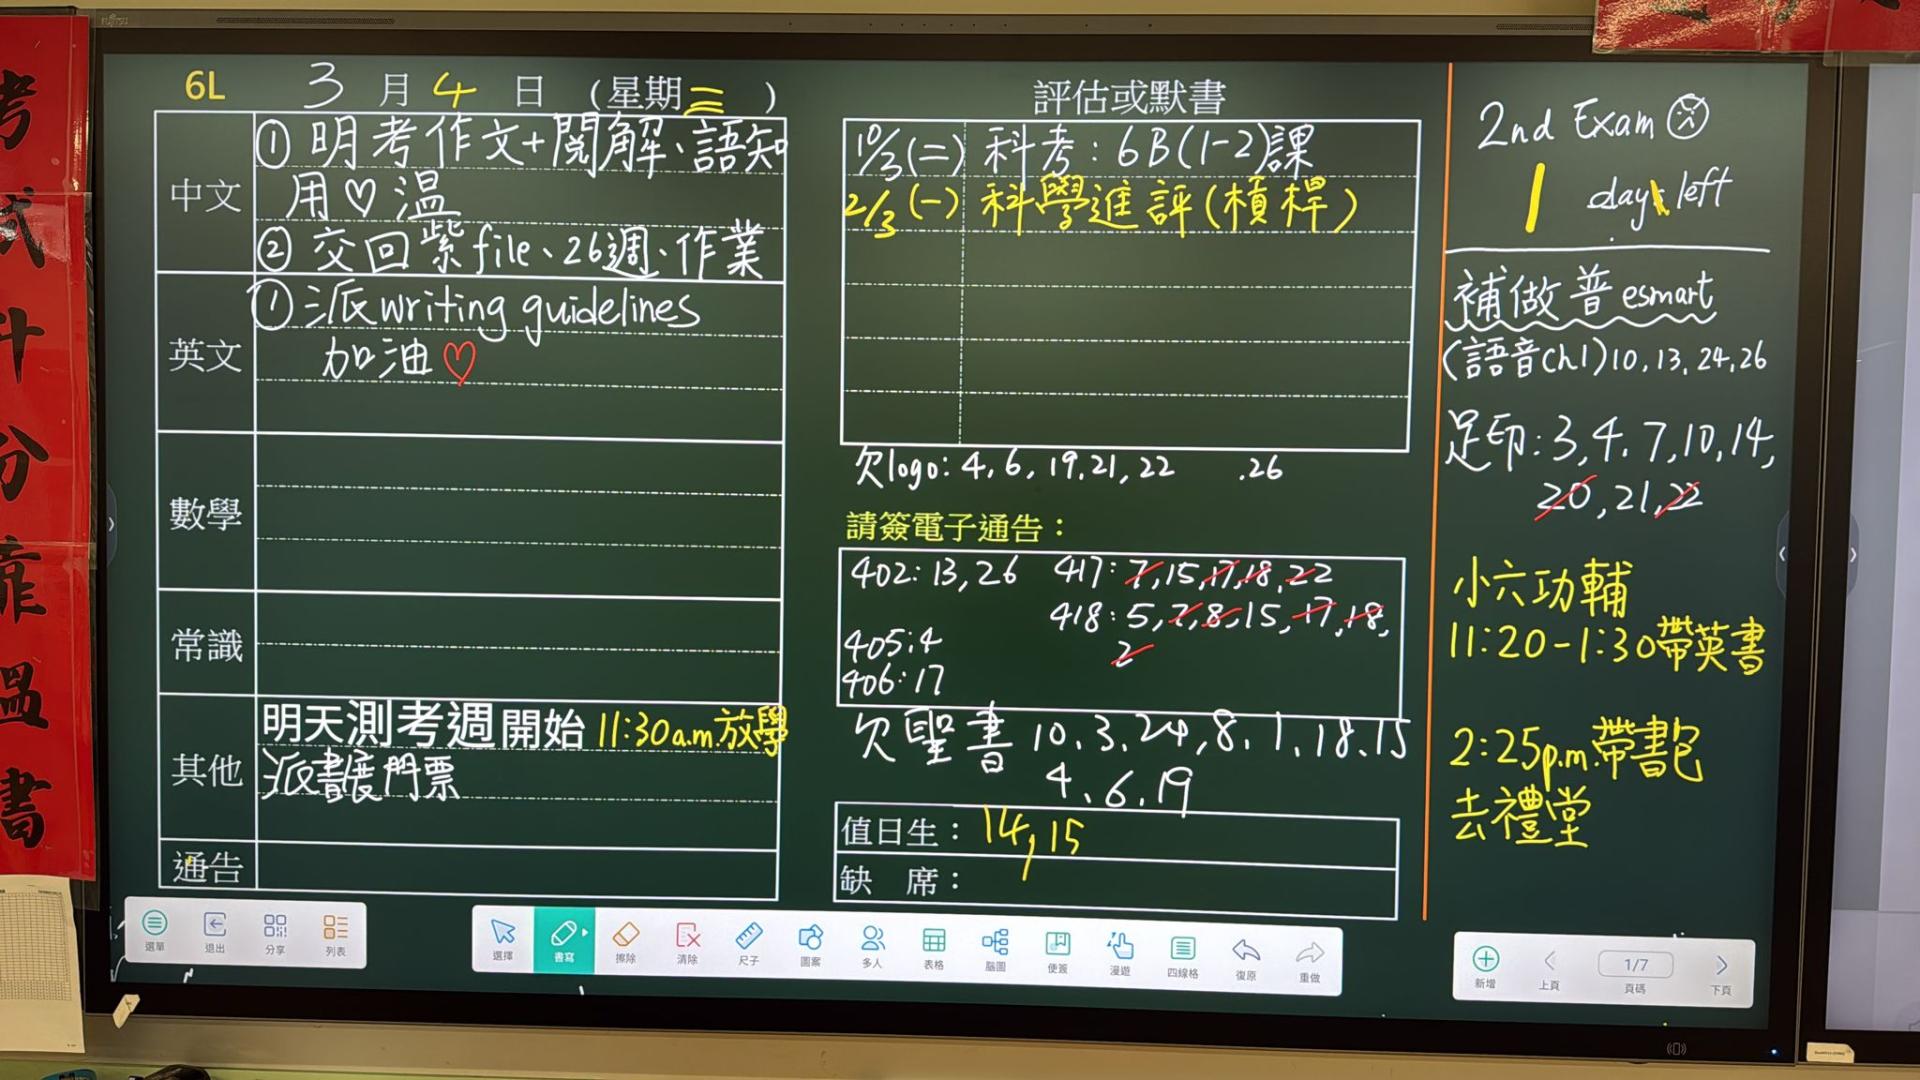 FUJITSU
6L 3月4日(星期三)
中文
①明考作文+閱解、語知
用♡溫
②交回紫file、26週、作業
英文
①派writing guidelines
加油♡
數學
常識
其他
明天測考週開始 11:30a.m.放學
派書展門票
通告
評估或默書
10/3(二) 科考:6B(1-2)課
2/3(一) 科學進評(槓桿)
欠logo:4,6,19,21,22 .26
請簽電子通告:
402:13,26 417:7,15,17,18,22
418:5,7,8,15,17,18,
2
405:4
406:17
欠聖書 10.3.24,8.1.18.15
4.6.19
值日生: 14,15
缺 席:
2nd Exam
1 days left
補做普esmart
(語音Ch1)10,13,24,26
足印:3,4,7,10,14,
20,21,22
小六功輔
11:20-1:30帶英書
2:25p.m.帶書包
去禮堂
選單 退出 分享 列表
選擇 書寫 擦除 清除 尺子 圖案 多人 表格 腦圖 便簽 漫遊 四線格 復原 重做
新增 上頁 1/7 頁碼 下頁
考試升分靠溫書